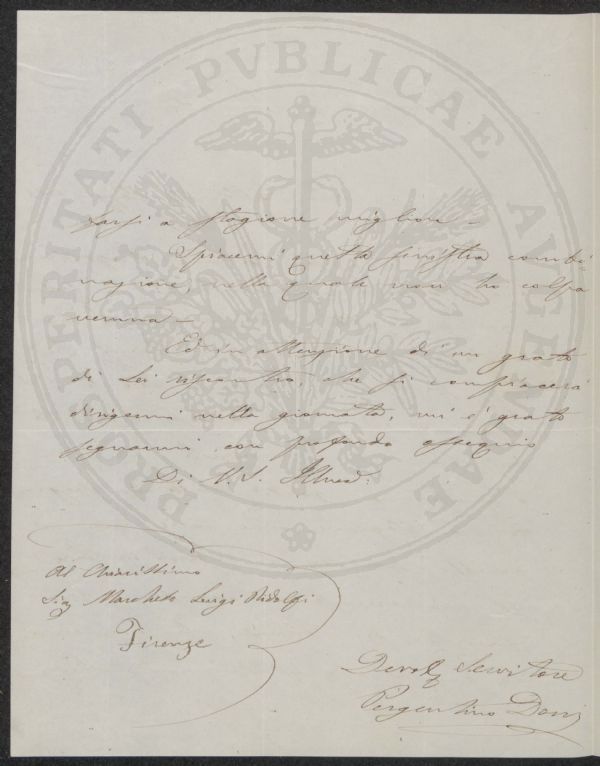 PROSPERITATI PVBLICAE AVGENDAE
farsi a stagione migliore =
Spiacemi questa sinistra combi=
nazione, nella quale non ho colpa
veruna =
Ed in attenzione di un grato
di Lei riscontro, che si compiacerà
dirigermi nella giornata, mi è grato
segnarmi con profondo ossequio
Di V. S. Illma
Al Chiarissimo
Sig Marchese Luigi Ridolfi
Firenze
Servitore
Pergentino